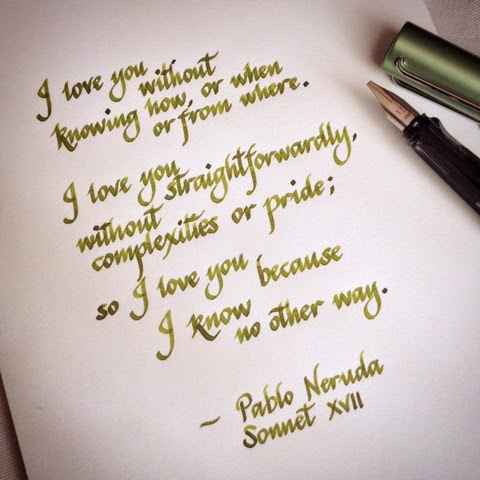 I love you without
knowing how, or when
or from where.
I love you straightforwardly,
without
complexities or pride;
so I love you because
I know
no other way.
~ Pablo Neruda
Sonnet XVII